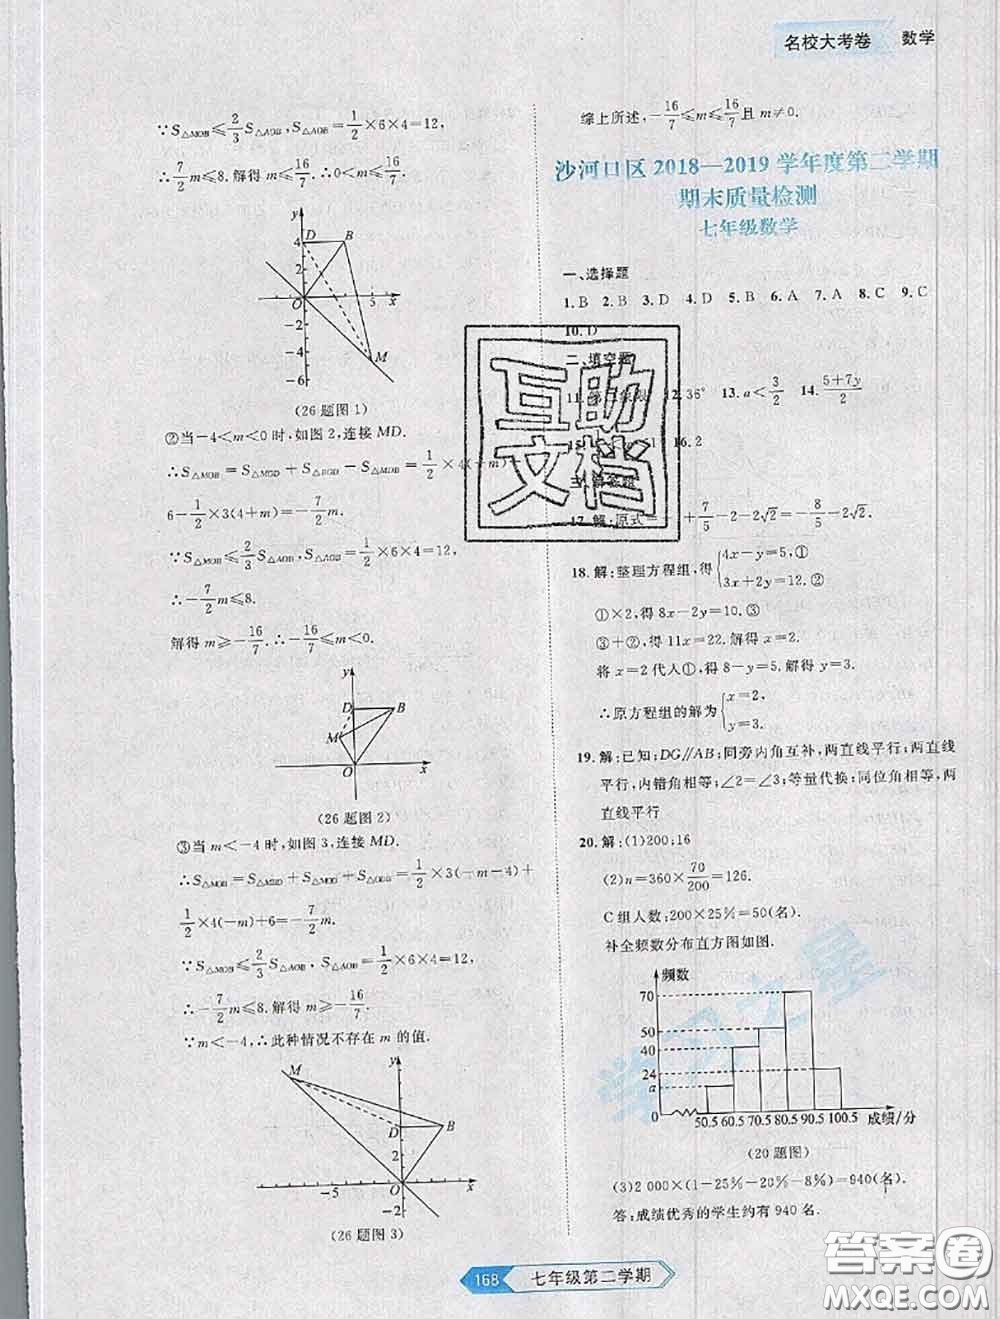 名校大考卷 数学
∵S△MOB≤2/3S△AOB,S△AOB=1/2×6×4=12,
∴7/2m≤8.解得m≤16/7.∴0<m≤16/7.
y
D B
4
2
O 5 x
-2
-4
M
-6
(26题图1)
②当-4<m<0时,如图2,连接MD.
∴S△MOB=S△MGD+S△BGD-S△MDB=1/2×4(-m)+
6-1/2×3(4+m)=-7/2m.
∵S△MOB≤2/3S△AOB,S△AOB=1/2×6×4=12,
∴-7/2m≤8.
解得m≥-16/7.∴-16/7≤m<0.
y
D B
M
O x
(26题图2)
③当m<-4时,如图3,连接MD.
∴S△MOB=S△MBD+S△MOD+S△OBD=1/2×3(-m-4)+
1/2×4(-m)+6=-7/2m.
∵S△MOB≤2/3S△AOB,S△AOB=1/2×6×4=12,
∴-7/2m≤8.解得m≥-16/7.
∵m<-4,∴此种情况不存在m的值.
y
M
D B
2
-5 O x
-2
(26题图3)
综上所述,-16/7≤m≤16/7且m≠0.
沙河口区2018—2019学年度第二学期
期末质量检测
七年级数学
一、选择题
1.B 2.B 3.D 4.D 5.B 6.A 7.A 8.C 9.C
10.D
二、填空题
11. 12.36° 13.a<3/2 14.(5+7y)/2
15. 16.2
三、解答题
17.解:原式= +7/5-2-2√2=-8/5-2√2.
18.解:整理方程组,得{4x-y=5,①
3x+2y=12.②
①×2,得8x-2y=10.③
③+②,得11x=22.解得x=2.
将x=2代入①,得8-y=5.解得y=3.
∴原方程组的解为{x=2,
y=3.
19.解:已知;DG∥AB;同旁内角互补,两直线平行;两直线
平行,内错角相等;∠2=∠3;等量代换;同位角相等,两
直线平行
20.解:(1)200;16
(2)n=360×70/200=126.
C组人数:200×25%=50(名).
补全频数分布直方图如图.
频数
70
50
40
24
a
0 50.5 60.5 70.5 80.5 90.5 100.5 成绩/分
(20题图)
(3)2 000×(1-25%-20%-8%)=940(名).
答:成绩优秀的学生约有940名.
168 七年级第二学期
互助
文档
学习之星
答案卷
MXQE.COM